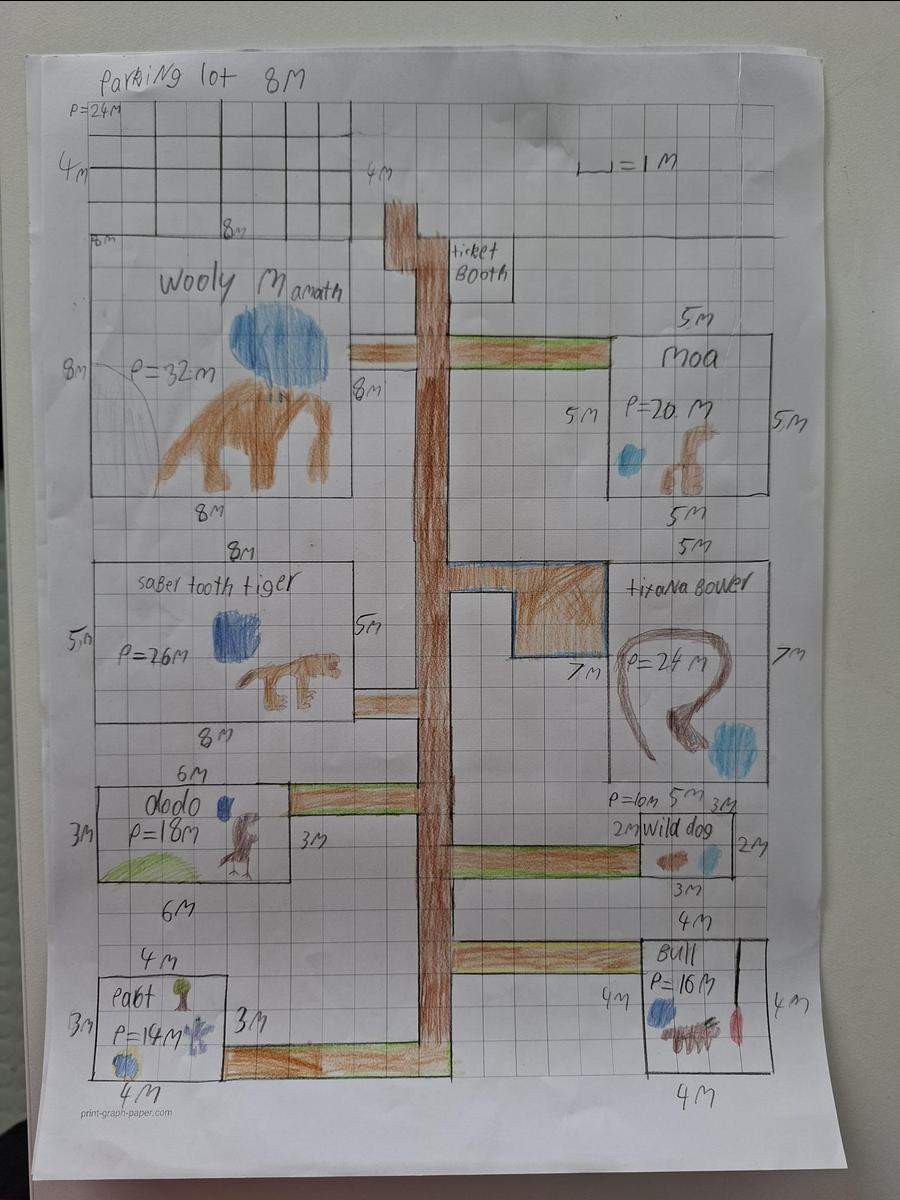 Parking lot 8M
P=24M
4M
4M
⊔=1M
8M
8M
ticket
Booth
Wooly Mamath
5M
Moa
8M
P=32M
8M
5M
P=20 M
5M
8M
5M
8M
5M
saBer tooth tiger
tixana Bower
5M
P=26M
5M
7M
P=24M
7M
8M
6M
dodo
P=10M
5M
3M
3M
P=18M
3M
2M
wild dog
2M
3M
6M
4M
4M
Bull
Pabt
P=16M
3M
P=14M
3M
4M
4M
4M
4M
print-graph-paper.com